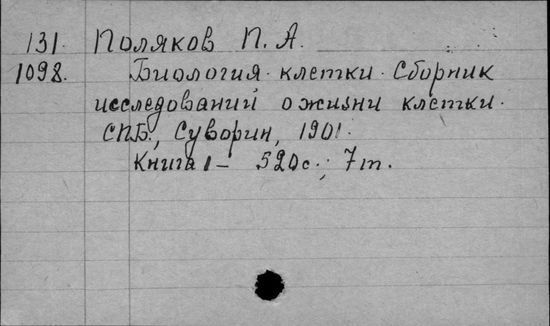 131. Поляков П. А.
1098. Биология клетки. Сборник
исследований о жизни клетки.
СПБ, Суворин, 1901.
Книга 1 – 520с.; 7т.